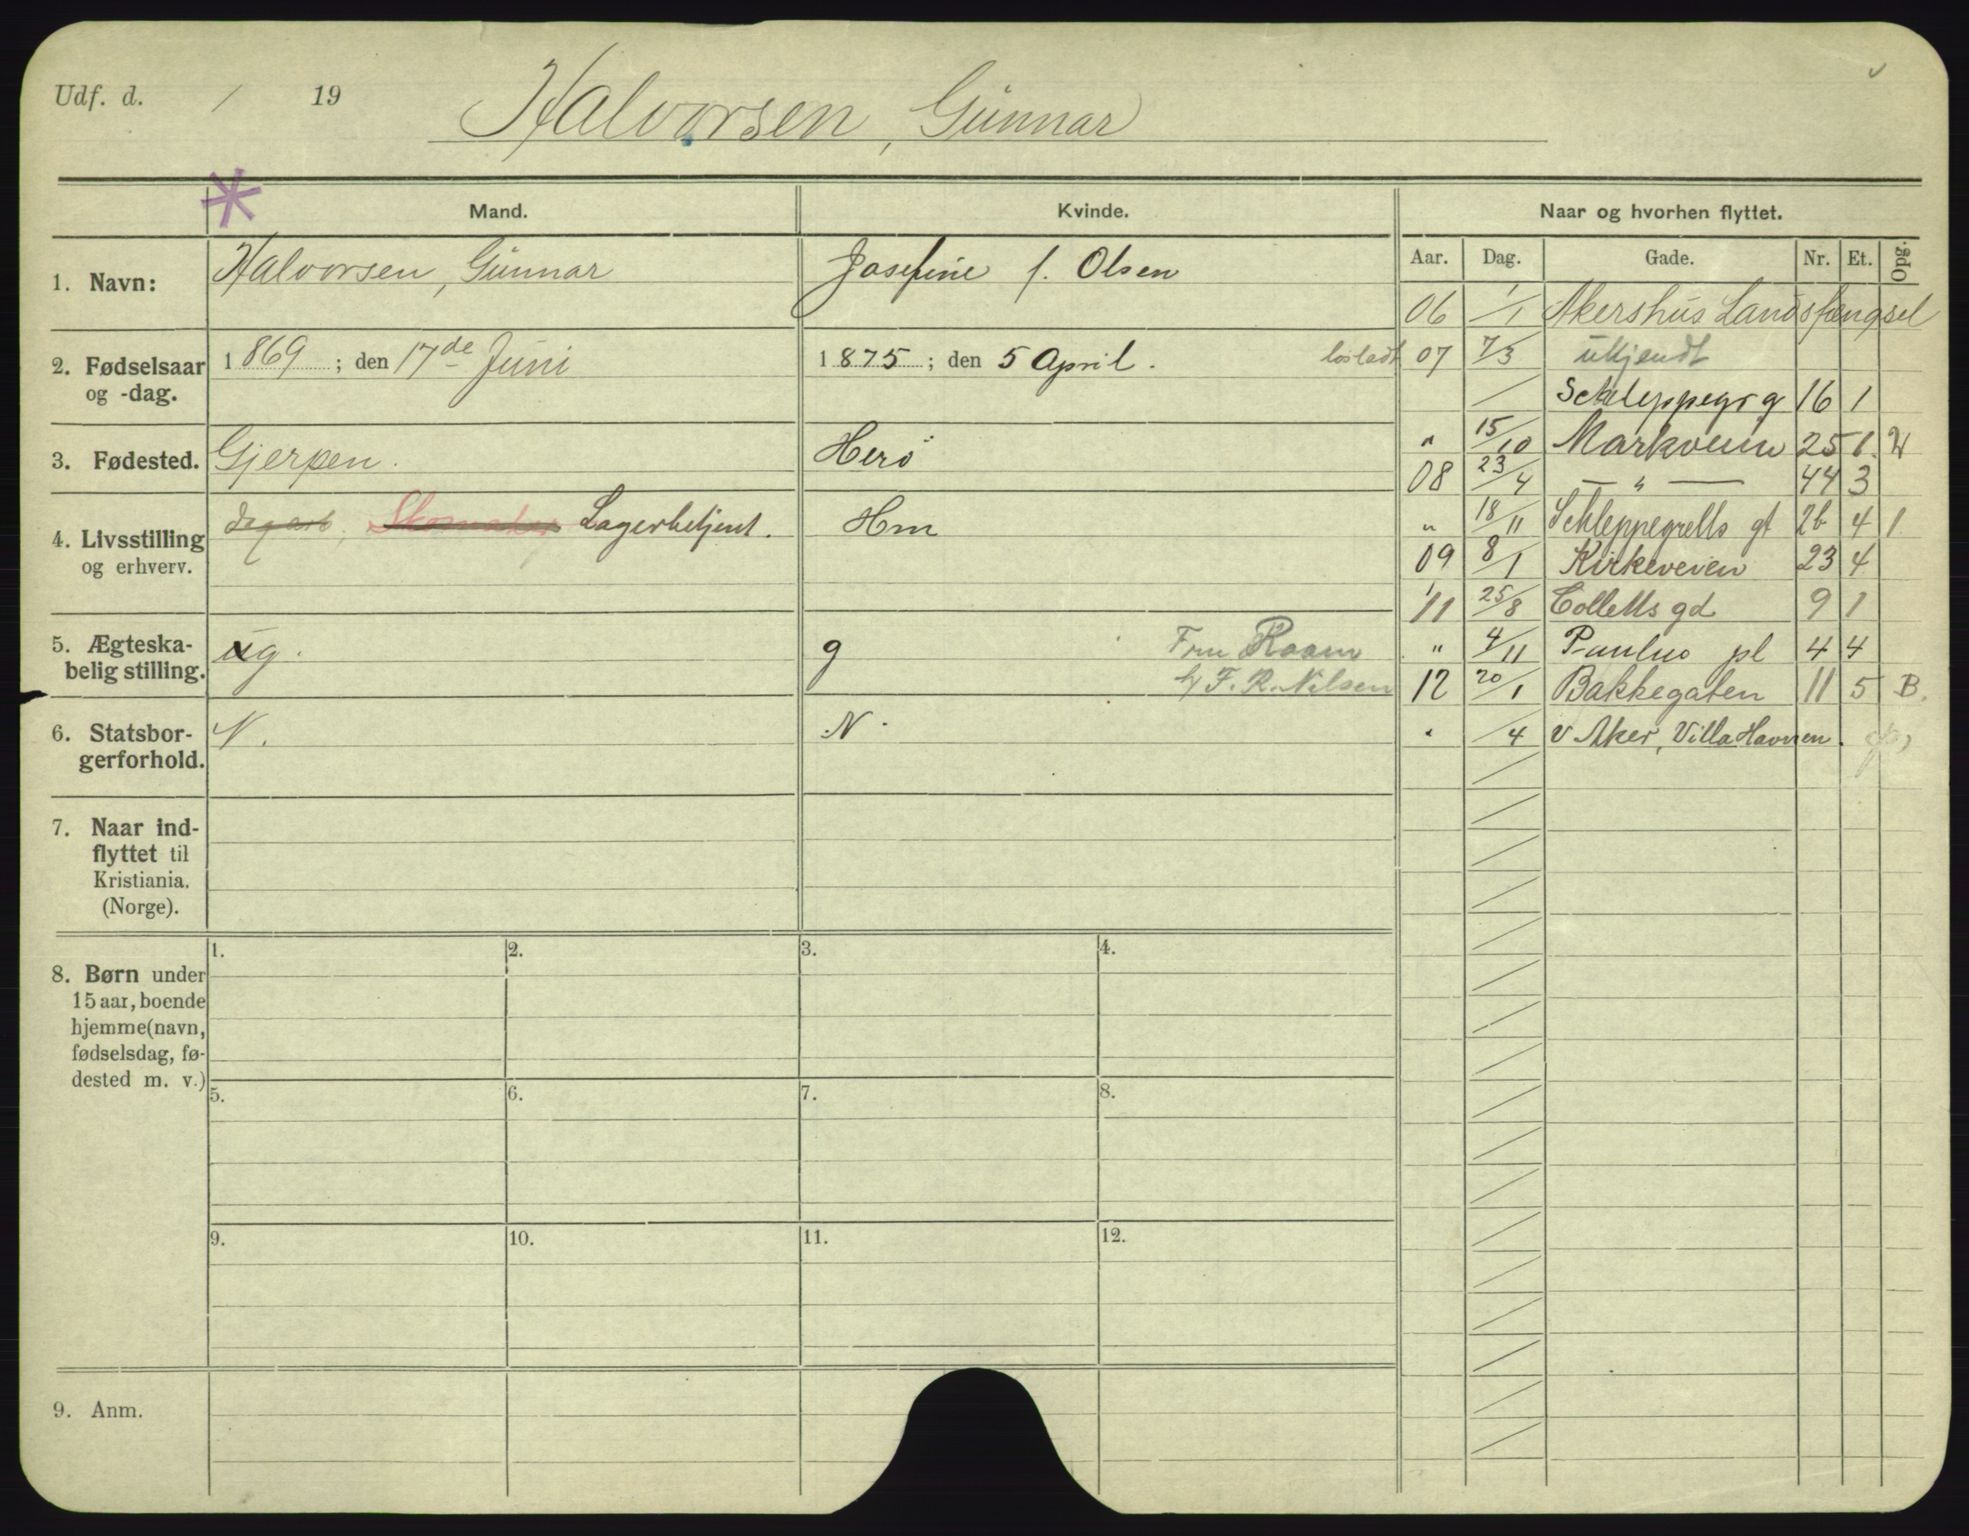 Udf. d. / 19
Halvorsen, Gunnar
Mand. Kvinde. Naar og hvorhen flyttet.
Aar. Dag. Gade. Nr. Et. Opg.
1. Navn: Halvorsen, Gunnar Josefine f. Olsen
06 1/1 Akershus Landsfængsel
2. Fødselsaar og -dag. 1869; den 17de Juni 1875; den 5 April.
løsladt 07 7/3 ukjendt
/ Schleppegr g 16 1
3. Fødested. Gjerpen. Herø
" 15/10 Markveien 25 1. 2
08 23/4 — " — 44 3
4. Livsstilling og erhverv. dagarb, Skomaker Lagerbetjent. Hm
" 18/11 Schleppegrells gt 26 4 1
09 8/1 Kirkeveien 23 4
11 25/8 Colletts gd 9 1
5. Ægteska-
belig stilling. ug. g Fru Roam
" 4/11 Paulus pl 4 4
b/ F. R. Nilsen
12 20/1 Bakkegaten 11 5 B.
6. Statsbor-
gerforhold. N. N.
" /4 V Aker, Villa Havnen.
7. Naar ind-
flyttet til
Kristiania.
(Norge).
8. Børn under
15 aar, boende
hjemme (navn,
fødselsdag, fø-
dested m. v.)
1. 2. 3. 4.
5. 6. 7. 8.
9. 10. 11. 12.
9. Anm.